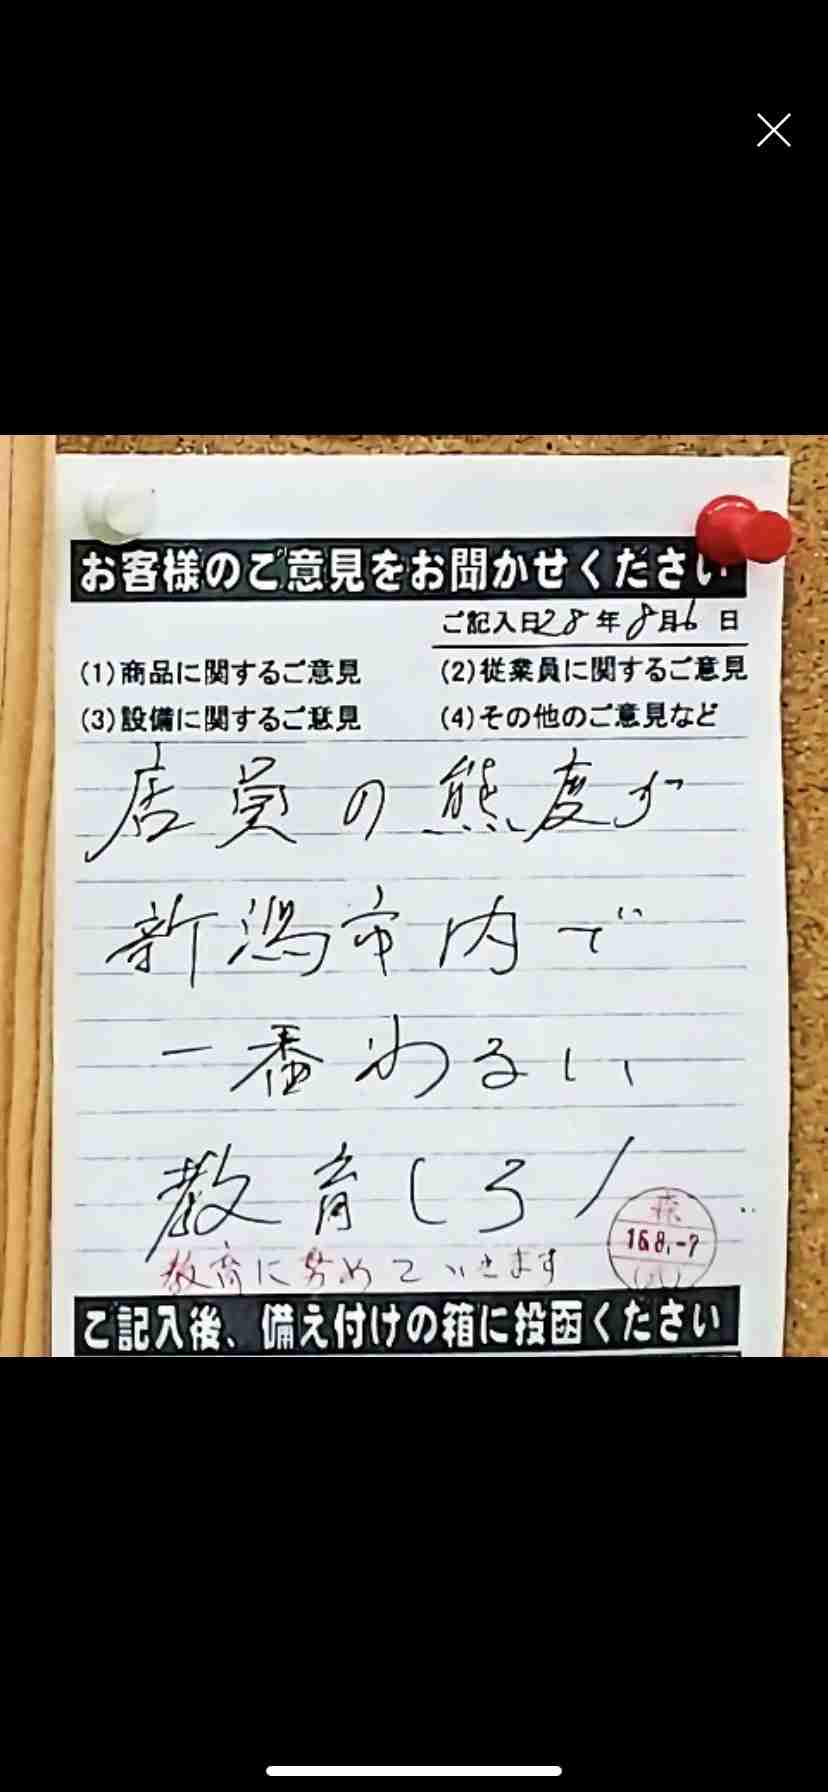 お客様のご意見をお聞かせください
ご記入日28年8月6日
(1)商品に関するご意見
(2)従業員に関するご意見
(3)設備に関するご意見
(4)その他のご意見など
店員の熊度が
新潟市内で
一番わるい
教育しろ！
教育に努めていきます
16.8.-7
ご記入後、備え付けの箱に投函ください